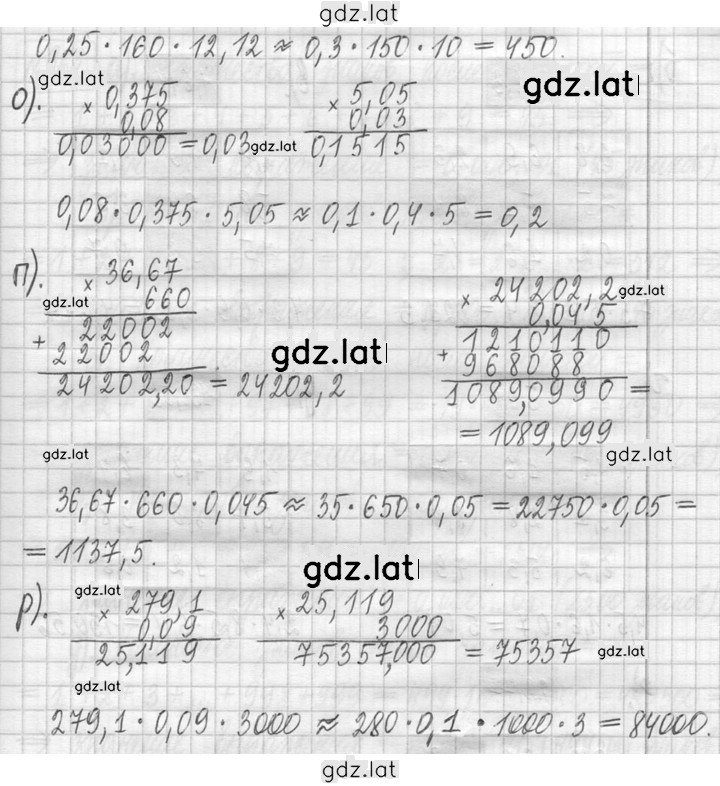 gdz.lat
0,25 · 160 · 12,12 ≈ 0,3 · 150 · 10 = 450.
gdz.lat
gdz.lat
о). × 0,375 × 5,05
0,08 0,03
0,03000 = 0,03 gdz.lat 0,1515
0,08 · 0,375 · 5,05 ≈ 0,1 · 0,4 · 5 = 0,2
п). × 36,67 × 24202,2 gdz.lat
gdz.lat 660 0,045
+ 22002 + 1210110
22002 968088
24202,20 = 24202,2 1089,0990 =
gdz.lat
= 1089,099
gdz.lat gdz.lat
36,67 · 660 · 0,045 ≈ 35 · 650 · 0,05 = 22750 · 0,05 =
= 1137,5.
gdz.lat
р). gdz.lat
× 279,1 × 25,119
0,09 3000
25,119 75357,000 = 75357 gdz.lat
gdz.lat
279,1 · 0,09 · 3000 ≈ 280 · 0,1 · 1000 · 3 = 84000.
gdz.lat